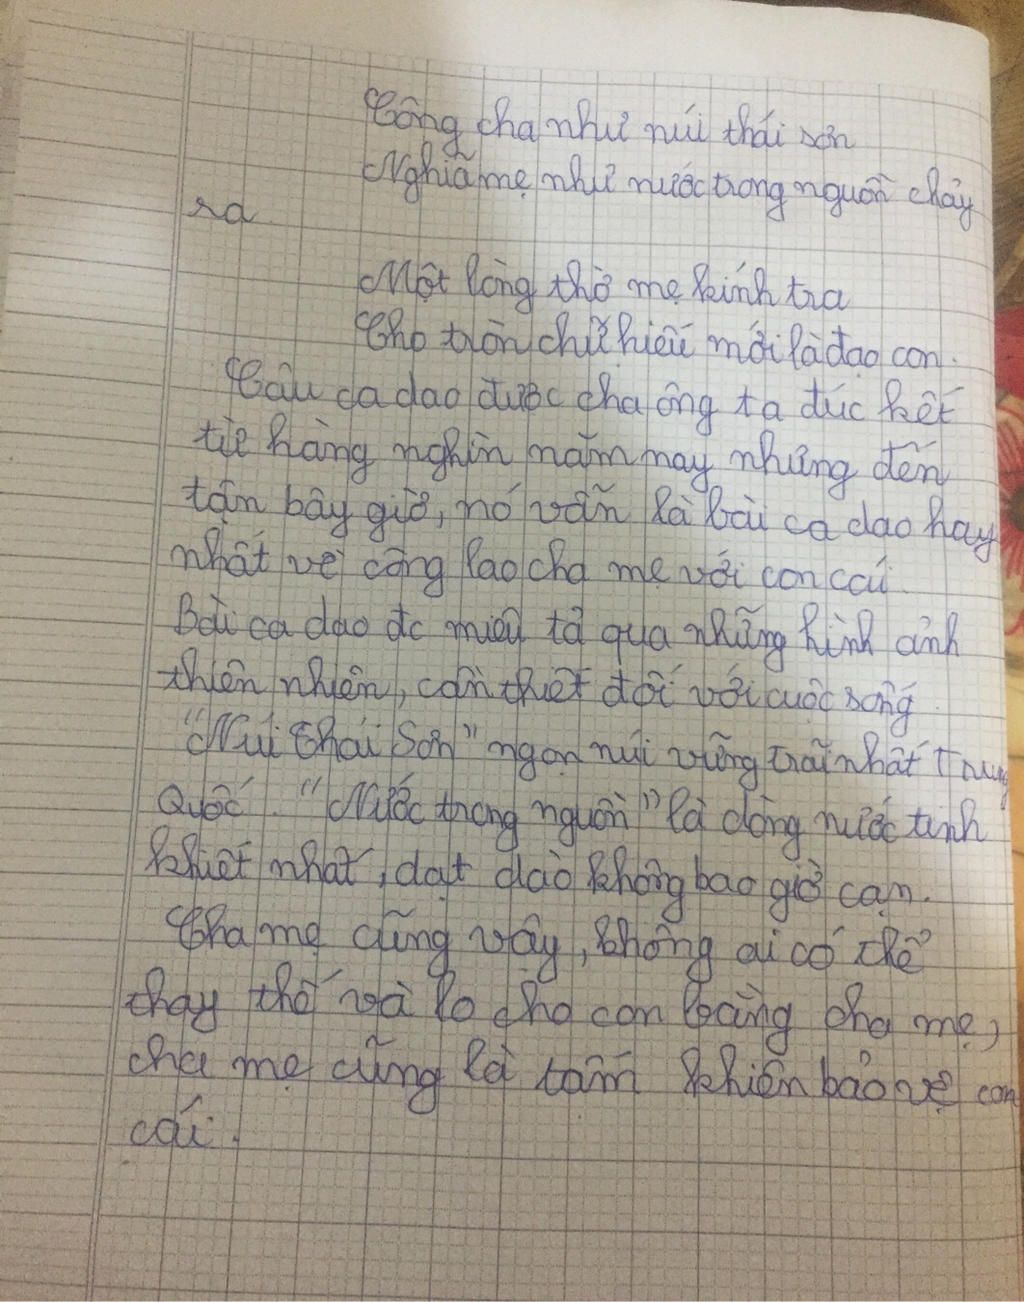 Công cha như núi thái sơn
Nghĩa mẹ như nước trong nguồn chảy
ra
Một lòng thờ mẹ kính tra
Cho tròn chữ hiếu mới là đạo con.
Câu ca dao được cha ông ta đúc kết
từ hàng nghìn năm nay nhưng đến
tận bây giờ, nó vẫn là bài ca dao hay
nhất về công lao cha mẹ với con cái.
Bài ca dao đc miêu tả qua những hình ảnh
thiên nhiên, cần thiết đối với cuộc sống.
"Núi Thái Sơn" ngọn núi vững trãi nhất Trung
Quốc. "Nước trong nguồn" là dòng nước tinh
khiết nhất, dạt dào không bao giờ cạn.
Cha mẹ cũng vậy, không ai có thể
thay thế và lo cho con bằng cha mẹ,
cha mẹ cũng là tấm khiên bảo vệ con
cái.